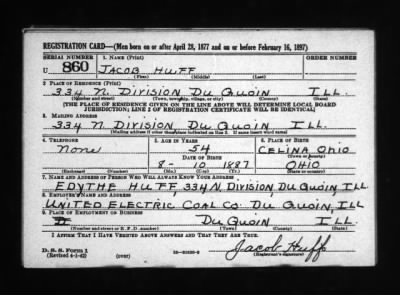 REGISTRATION CARD—(Men born on or after April 28, 1877 and on or before February 16, 1897)
SERIAL NUMBER 1. NAME (Print) ORDER NUMBER
U 860 JACOB HUFF
(First) (Middle) (Last)
2. PLACE OF RESIDENCE (Print)
334 N. DIVISION DU QUOIN ILL.
(Number and street) (Town, township, village, or city) (County) (State)
[THE PLACE OF RESIDENCE GIVEN ON THE LINE ABOVE WILL DETERMINE LOCAL BOARD
JURISDICTION; LINE 2 OF REGISTRATION CERTIFICATE WILL BE IDENTICAL]
3. MAILING ADDRESS
334 N. DIVISION DU QUOIN ILL.
(Mailing address if other than place indicated on line 2. If same insert word same)
4. TELEPHONE 5. AGE IN YEARS 6. PLACE OF BIRTH
None 54 CELINA OHIO
DATE OF BIRTH (Town or county)
8- 10 1887 OHIO
(Exchange) (Number) (Mo.) (Day) (Yr.) (State or country)
7. NAME AND ADDRESS OF PERSON WHO WILL ALWAYS KNOW YOUR ADDRESS
EDYTHE HUFF, 334 N. DIVISION, DU QUOIN, ILL
8. EMPLOYER'S NAME AND ADDRESS
UNITED ELECTRIC COAL CO. DU QUOIN, ILL
9. PLACE OF EMPLOYMENT OR BUSINESS
DU QUOIN ILL.
(Number and street or R. F. D. number) (Town) (County) (State)
I AFFIRM THAT I HAVE VERIFIED ABOVE ANSWERS AND THAT THEY ARE TRUE.
D. S. S. Form 1
(Revised 4-1-42) (over) Jacob Huff
(Registrant's signature)